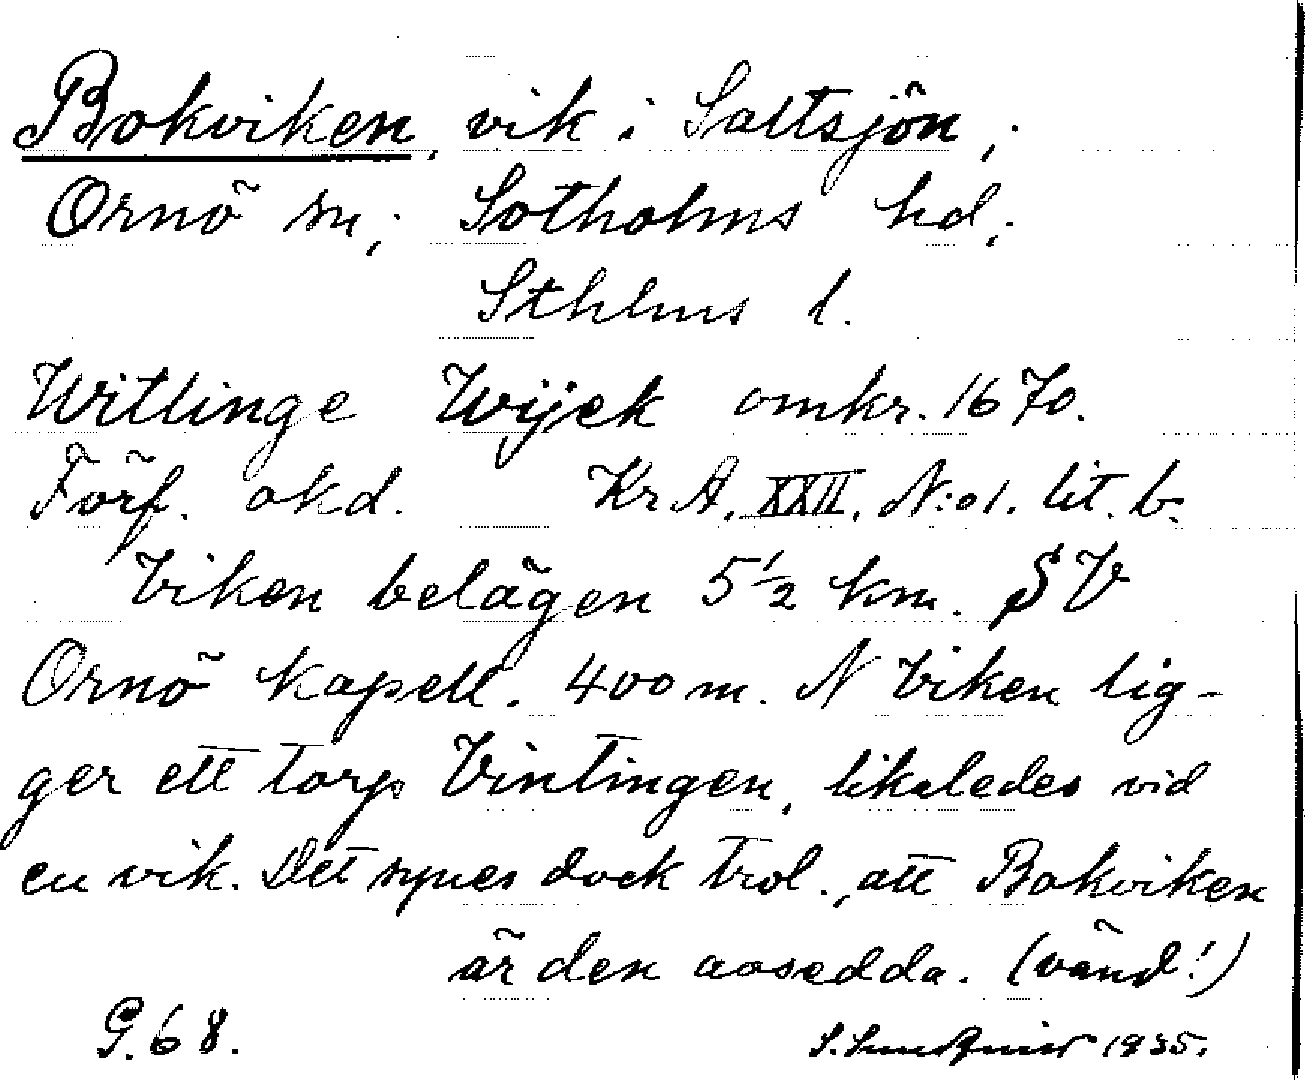 Bokviken, vik i Saltsjön;
Ornö sn; Sotholms hd;
Sthlms l.
Witlinge Wijek omkr. 1670.
Förf. okd. Kr A. XXII. N:o 1. lit. b.
Viken belägen 5 1/2 km. SV
Ornö kapell. 400 m. N Viken lig-
ger ett torp Vintingen, likaledes vid
en vik. Det synes dock trol., att Bokviken
är den avsedda. (vänd!)
G. 68.
S. 1935.